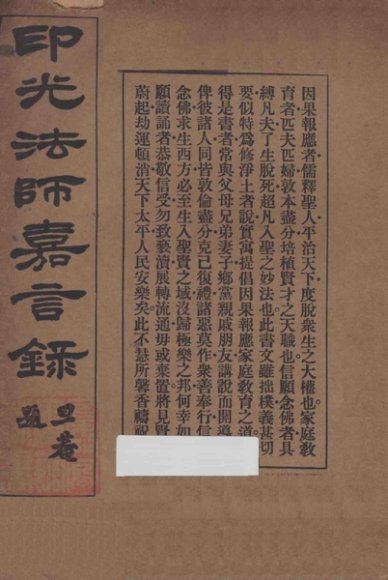 因果報應者儒釋聖人平治天下度脫衆生之大權也家庭教
育者匹夫匹婦敦本盡分培植賢才之天職也信願念佛者具
縛凡夫了生脫死超凡入聖之妙法也此書文雖拙樸義甚切
要似特爲修淨土者說實寓提倡因果報應家庭教育之道
得是書者常與父母兄弟妻子鄉黨親戚朋友講說而開導
俾彼諸人同皆敦倫盡分克己復禮諸惡莫作衆善奉行信
念佛求生西方必至生入聖賢之域沒歸極樂之邦何幸如
願讀誦者恭敬信受勿致褻瀆展轉流通毋或棄置將見賢
蔚起劫運頓消天下太平人民安樂矣此不慧所馨香禱祝
印光法師嘉言錄
題